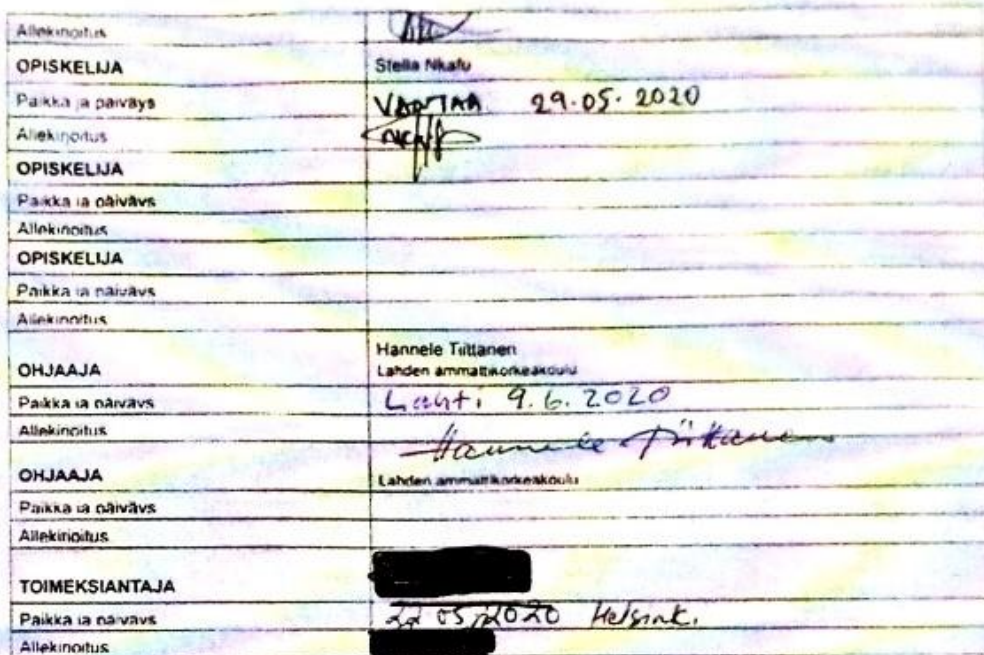 Allekirjoitus
OPISKELIJA Stella Nkafu
Paikka ja päiväys VANTAA 29.05.2020
Allekirjoitus
OPISKELIJA
Paikka ja päiväys
Allekirjoitus
OPISKELIJA
Paikka ja päiväys
Allekirjoitus
Hannele Tiittanen
OHJAAJA Lahden ammattikorkeakoulu
Paikka ja päiväys Lahti 9.6.2020
Allekirjoitus Hannele Tiittanen
OHJAAJA Lahden ammattikorkeakoulu
Paikka ja päiväys
Allekirjoitus
TOIMEKSIANTAJA
Paikka ja päiväys 22 05/2020 Helsinki
Allekirjoitus